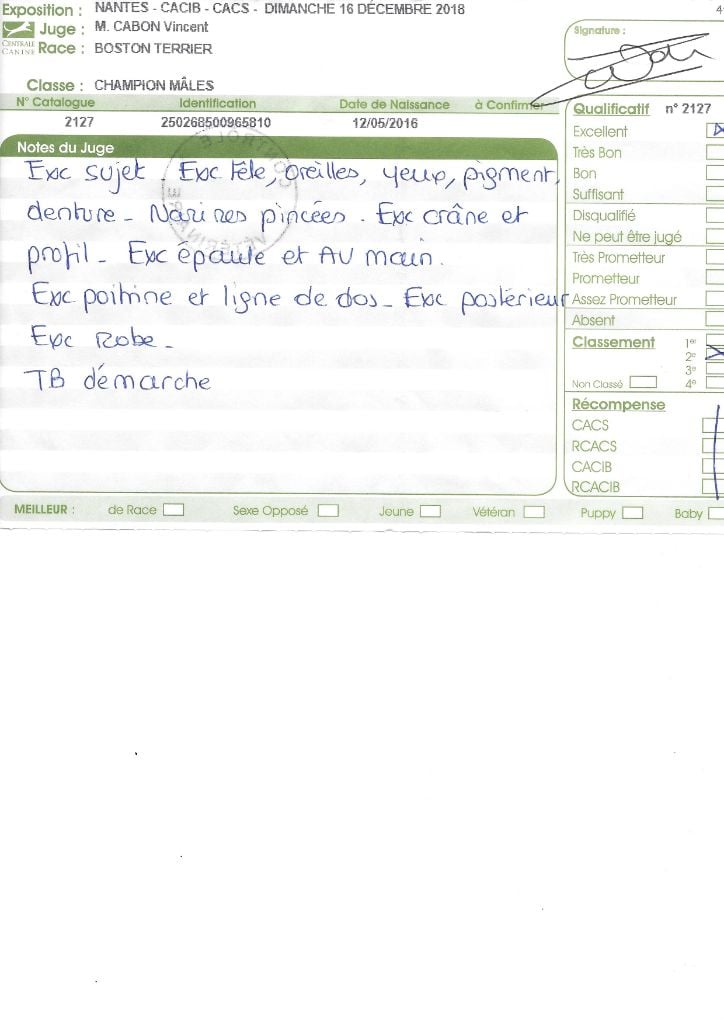 Exposition : NANTES - CACIB - CACS - DIMANCHE 16 DÉCEMBRE 2018
Juge : M. CABON Vincent
CENTRALE CANINE
Race : BOSTON TERRIER
Signature :
Classe : CHAMPION MÂLES
N° Catalogue Identification Date de Naissance à Confirmer
2127 250268500965810 12/05/2016
Notes du Juge
Exc sujet. Exc tête, oreilles, yeux, pigment,
denture - Narines pincées. Exc crâne et
profil - Exc épaule et AV main.
Exc poitrine et ligne de dos - Exc postérieur
Exc Robe -
TB démarche
CONTROLE VÉTÉRINAIRE
Qualificatif n° 2127
Excellent
Très Bon
Bon
Suffisant
Disqualifié
Ne peut être jugé
Très Prometteur
Prometteur
Assez Prometteur
Absent
Classement 1er
2e
3e
Non Classé 4e
Récompense
CACS
RCACS
CACIB
RCACIB
MEILLEUR : de Race Sexe Opposé Jeune Vétéran Puppy Baby